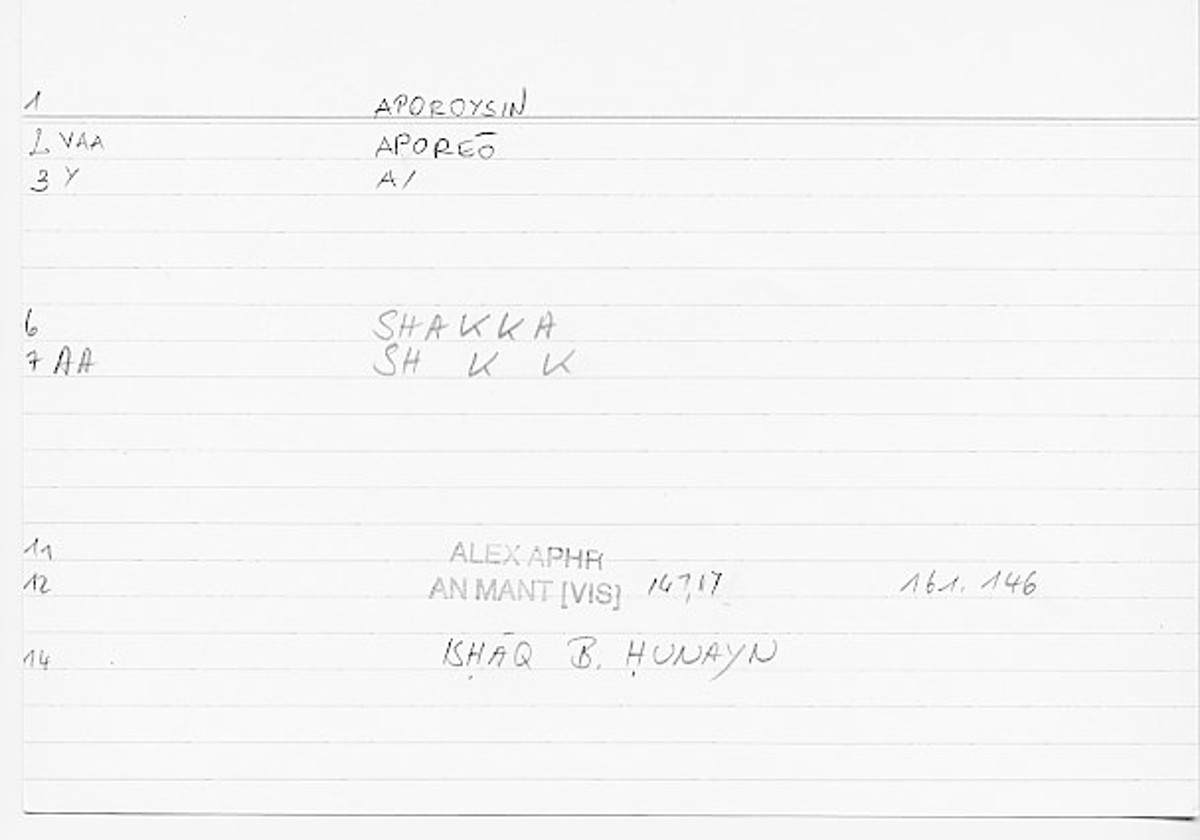 1 APOROYSIN
2 VAA APOREŌ
3 Y A/
6 SHAKKA
7 AA SH K K
11 ALEX APHR
12 AN MANT [VIS] 147,17 161. 146
14 ISḤĀQ B. ḤUNAYN